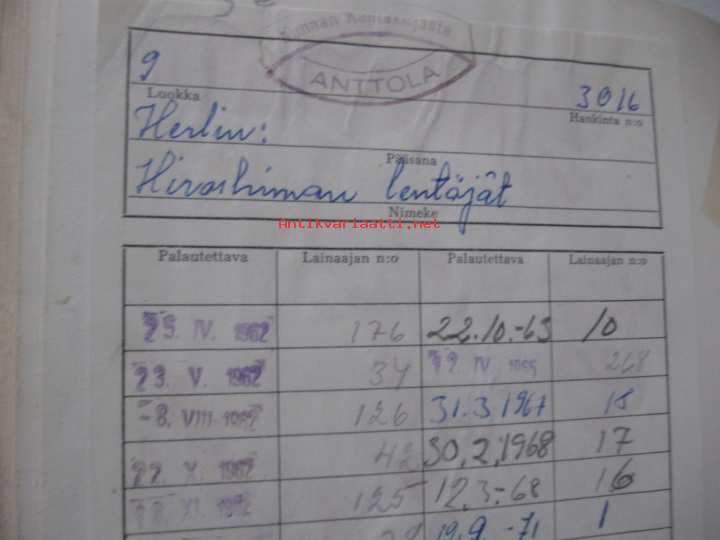 Kunnan
ANTTOLA
9 3016
Luokka Hankinta n:o
Herlin:
Pääsana
Hiroshiman lentäjät
Nimeke
Antikvariaatti.net
Palautettava Lainaajan n:o Palautettava Lainaajan n:o
IV. 1962 176 22.10.-63 10
23. V. 1962 34 IV 268
-8. VIII. 126 31.3 1967 15
X. 1962 42 30.2.1968 17
XI. 125 12.3.-68 16
19.9.-71 1